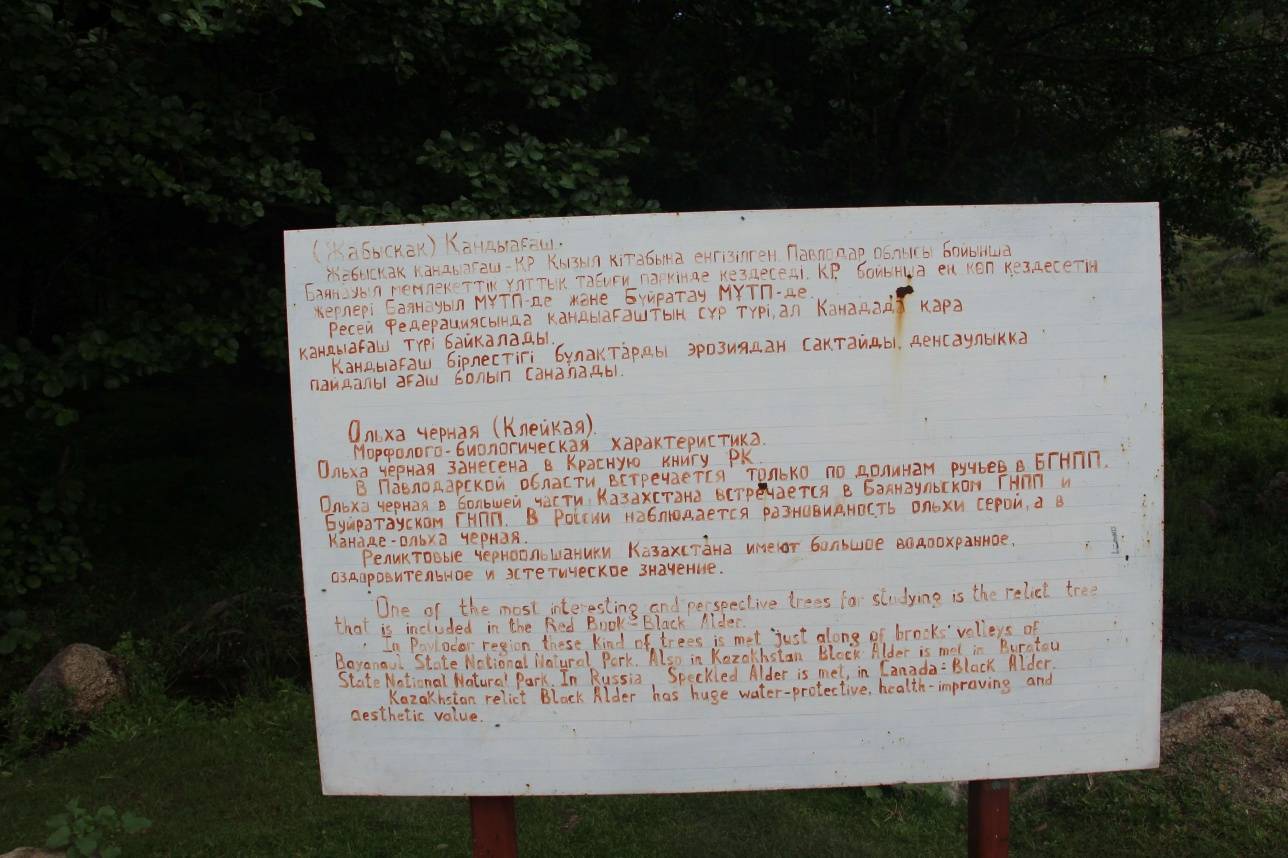 (Жабысқақ) Қандыағаш.
Жабысқақ қандыағаш-ҚР Қызыл кітабына енгізілген. Павлодар облысы бойынша
Баянауыл мемлекеттік ұлттық табиғи паркінде кездеседі. ҚР бойынша ең көп кездесетін
жерлері Баянауыл МҰТП-де және Бұйратау МҰТП-де.
Ресей Федерациясында қандыағаштың сұр түрі, ал Канадада қара
қандыағаш түрі байқалады.
Қандыағаш бірлестігі бұлақтарды эрозиядан сақтайды, денсаулыкка
пайдалы ағаш болып саналады.
Ольха черная (Клейкая).
Морфолого-биологическая характеристика.
Ольха черная занесена в Красную книгу РК.
В Павлодарской области встречается только по долинам ручьев в БГНПП.
Ольха черная в большей части Казахстана встречается в Баянаульском ГНПП и
Буйратауском ГНПП. В России наблюдается разновидность ольхи серой, а в
Канаде-ольха черная.
Реликтовые черноольшаники Казахстана имеют большое водоохранное,
оздоровительное и эстетическое значение.
One of the most interesting and perspective trees for studying is the relict tree
that is included in the Red Book-Black Alder.
In Pavlodar region these kind of trees is met just along of brooks' valleys of
Bayanaul State National Natural Park. Also in Kazakhstan Black Alder is met in Buratau
State National Natural Park. In Russia Speckled Alder is met, in Canada-Black Alder.
Kazakhstan relict Black Alder has huge water-protective, health-improving and
aesthetic value.